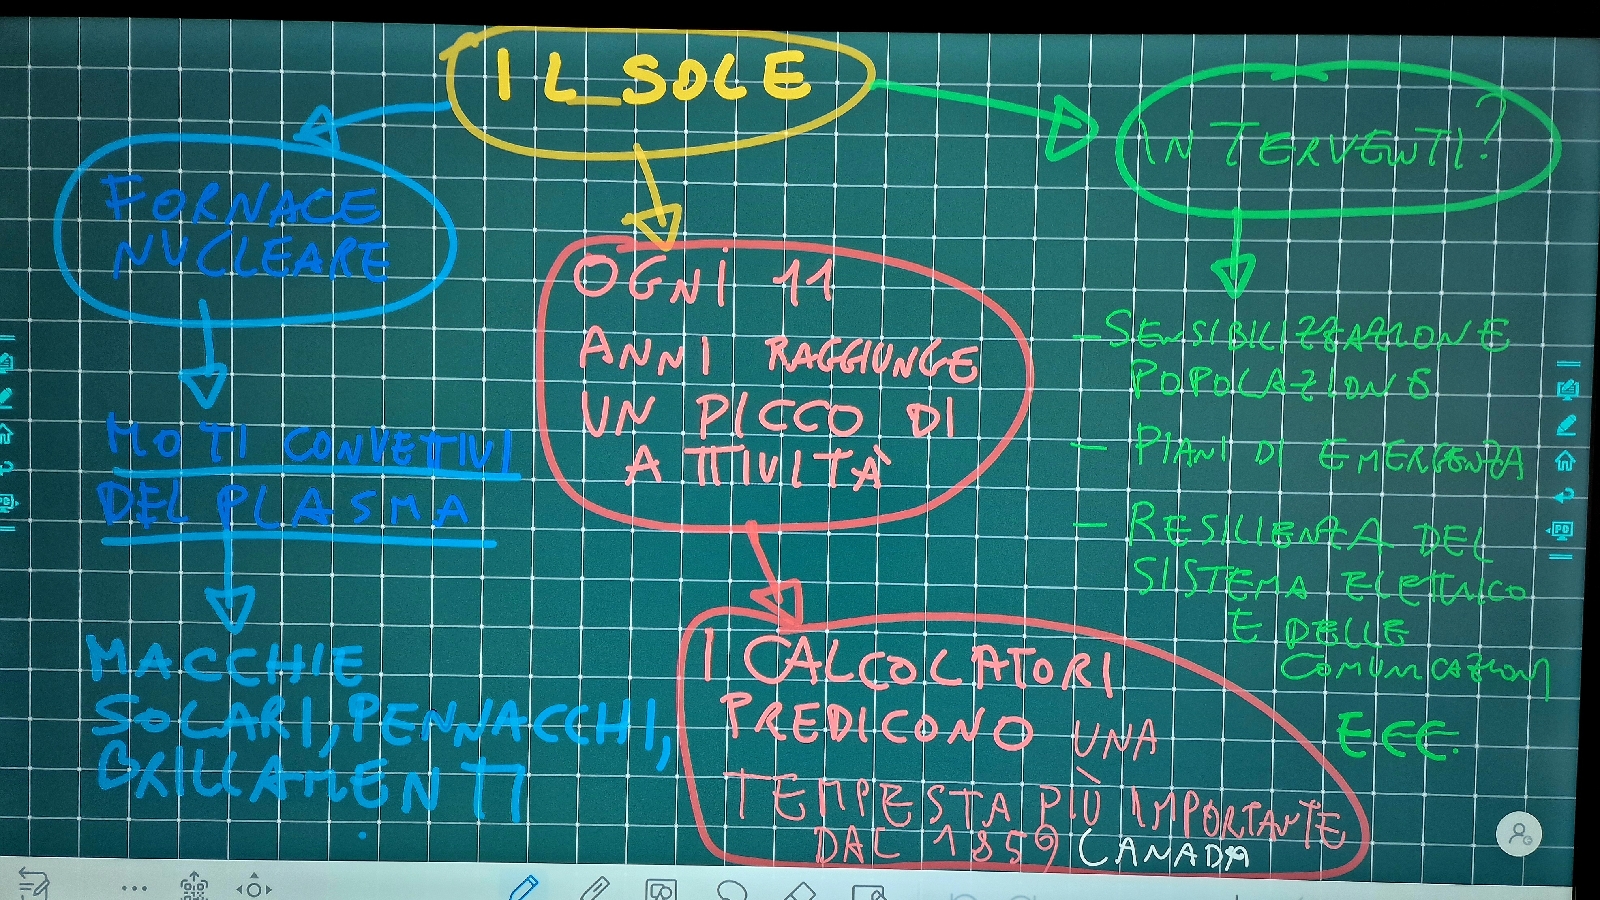 IL_SOLE
FORNACE
NUCLEARE
MOTI CONVETTIVI
DEL PLASMA
MACCHIE
SOLARI, PENNACCHI,
BRILLAMENTI
OGNI 11
ANNI RAGGIUNGE
UN PICCO DI
ATTIVITÀ
I CALCOLATORI
PREDICONO UNA
TEMPESTA PIÙ IMPORTANTE
DAL 1859 CANADA
INTERVENTI?
- SENSIBILIZZAZIONE
POPOLAZIONE
- PIANI DI EMERGENZA
- RESILIENZA DEL
SISTEMA ELETTRICO
E DELLE
COMUNICAZIONI
ECC.